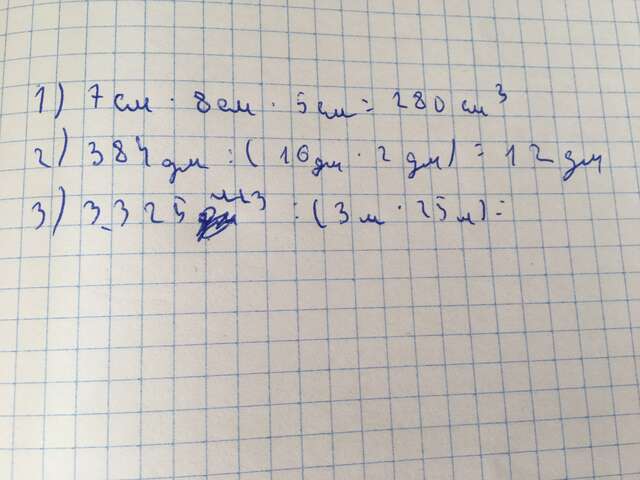 1) 7 см · 8 см · 5 см = 280 см³
2) 384 дм : ( 16 дм · 2 дм ) = 12 дм
3) 3 325 м3 : ( 3 м · 25 м ) =